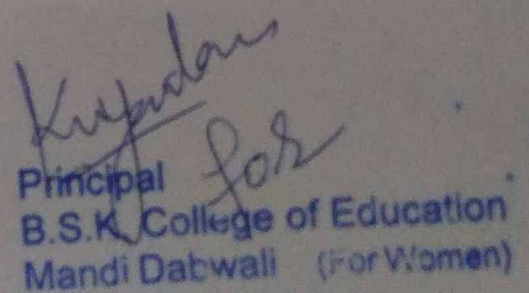 for
Principal
B.S.K. College of Education
Mandi Dabwali (For Women)